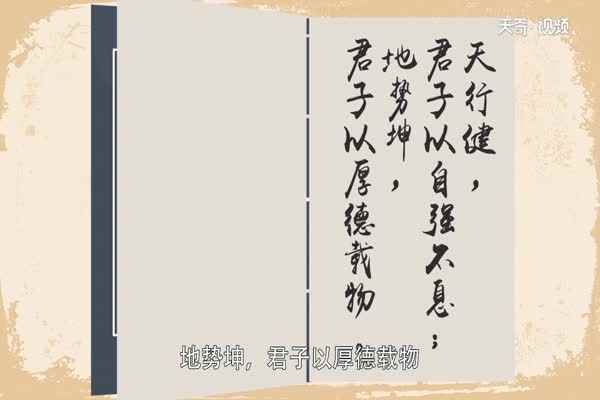 天奇·视频
天行健，
君子以自强不息；
地势坤，
君子以厚德载物。
地势坤，君子以厚德载物